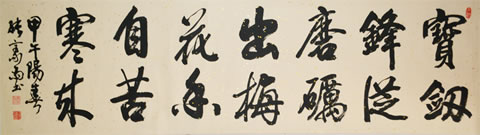 寶劔
鋒從
磨礪
出梅
花香
自苦
寒來
甲午陽春
書